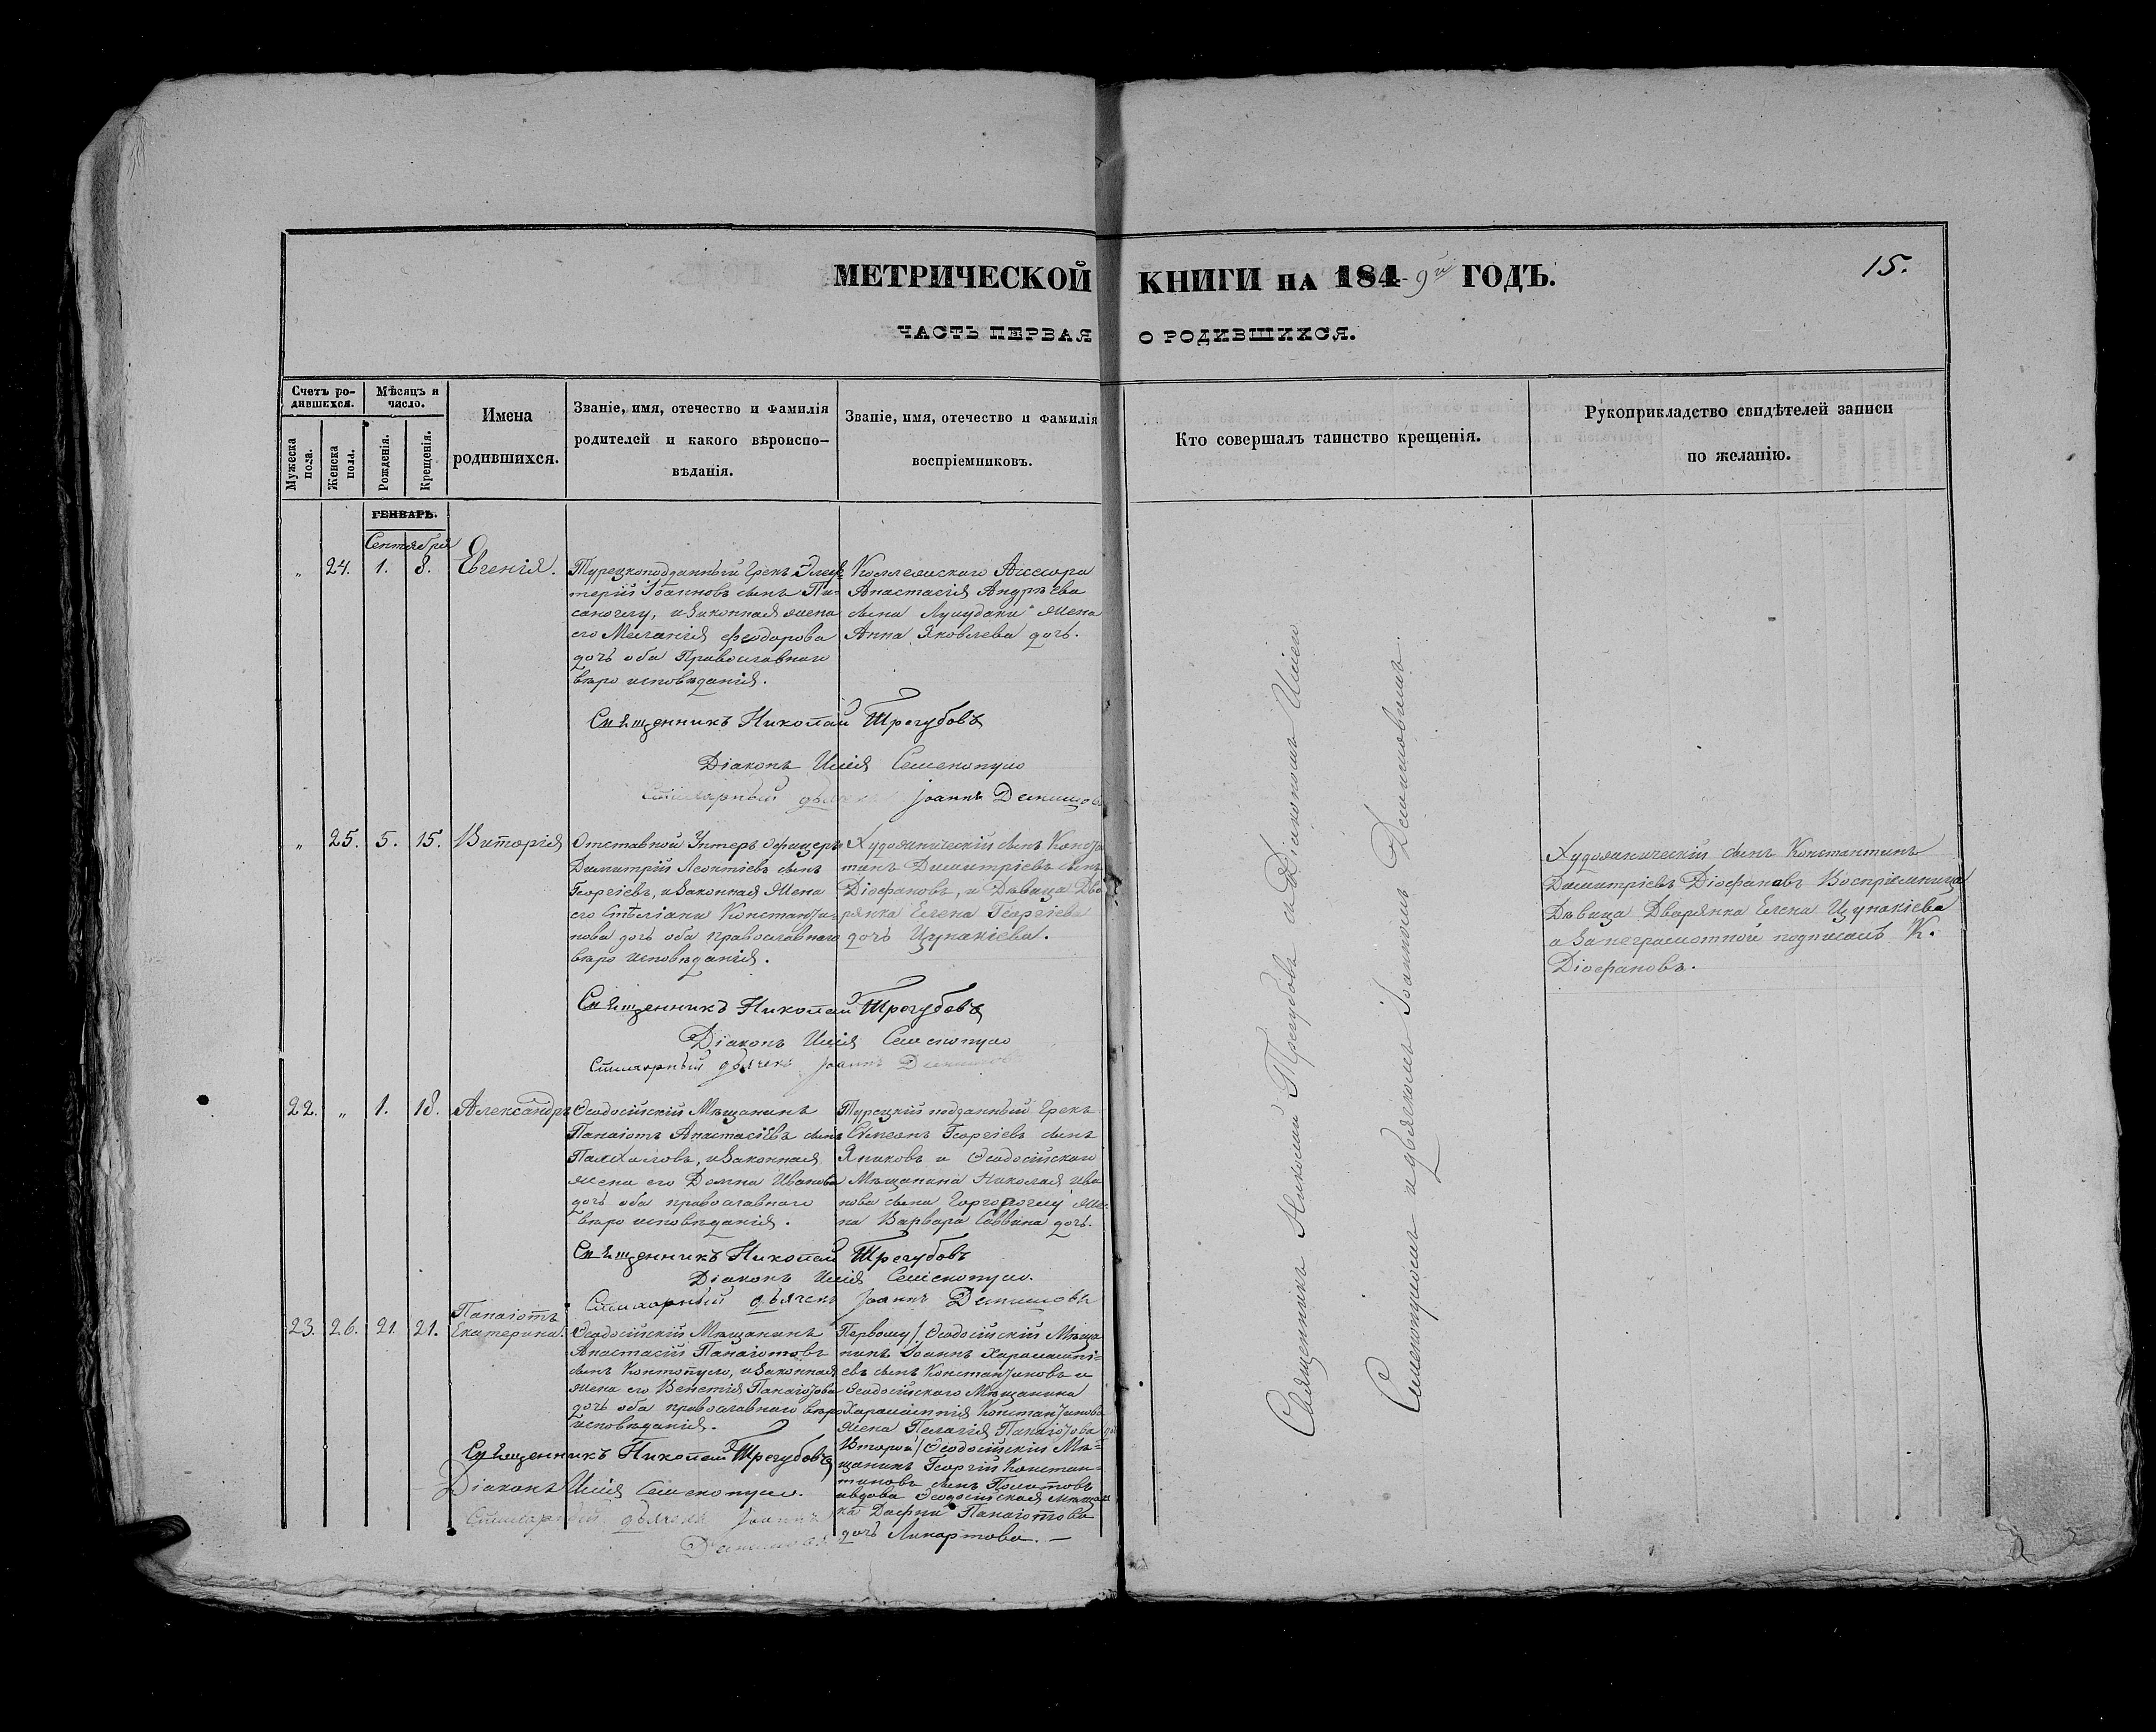 МЕТРИЧЕСКОЙ КНИГИ НА 1849й ГОДЪ.
15.
ЧАСТЬ ПЕРВАЯ О РОДИВШИХСЯ.
Счетъ родившихся.
Мужеска пола.
Женска пола.
Мѣсяцъ и число.
Рожденія.
Крещенія.
Имена
родившихся.
Званіе, имя, отечество и фамилія
родителей и какого вѣроиспо-
вѣданія.
Званіе, имя, отечество и фамилія
воспріемниковъ.
Кто совершалъ таинство крещенія.
Рукоприкладство свидѣтелей записи
по желанію.
ГЕНВАРЬ.
Сентября
„ 24. 1. 8. Евгенія.
Турецкоподданный Грекъ Элев
терій Іоанновъ сынъ Пи-
саноглу, и законная жена
его Меланія Феодорова
дочь оба Православнаго
вѣроисповѣданія.
Коллежскаго Ассесора
Анастасія Андрѣева
сына жена
Анна Яковлева дочь.
Священникъ Николай Трегубовъ
Діаконъ Илія Семенопуло
Стихарный дьячекъ Іоаннъ
„ 25. 5. 15. Виторія
Отставной Унтеръ Офицеръ
Димитрій Леонтіевъ сынъ
Георгіевъ, и законная жена
его Стѣліани Константи-
нова дочь оба православнаго
вѣро исповѣданія.
Художническій сынъ Конста
тинъ Димитріевъ сынъ
Діофановъ, и Дѣвица Дво
рянка Елена Георгіева
дочь Цунакіева.
Художническій сынъ Константинъ
Димитріевъ Діофановъ Воспріемница
Дѣвица Дворянка Елена Цунакіева
а за неграмотной подписалъ К.
Діофановъ.
Священникъ Николай Трегубовъ
Діаконъ Илія Семенопуло
Стихарный дьячекъ Іоаннъ
22. „ 1. 18. Александръ
Ѳеодосійскій Мѣщанинъ
Панаіотъ Анастасіевъ сынъ
и законная
жена его Домна Иванова
дочь оба православнаго
вѣро исповѣданія.
Турецкій подданный Грекъ
Симеонъ Георгіевъ сынъ
Яниковъ и Ѳеодосійскаго
Мѣщанина Николая Ива
нова сына жe
на Варвара Саввина дочь.
Священникъ Николай Трегубовъ
Діаконъ Илія Семенопуло.
Стихарный дьячекъ Іоаннъ
23. 26. 21. 21. Панаіотъ
Екатерина.
Ѳеодосійскій Мѣщанинъ
Анастасій Панаіотовъ
сынъ Контопуло, и законная
жена его Венетія Панаіотова
дочь оба православнаго вѣро
исповѣданія.
Первому/ Ѳеодосійскій Мѣща
нинъ Іоаннъ Харалампі-
евъ сынъ Константиновъ и
Ѳеодосійскаго Мѣщанина
Харалампія Константинова
жена Пелагія Панаіотова
Второй/ Ѳеодосійскій Мѣ-
щанинъ Георгій Констан-
тиновъ сынъ
вдова Ѳеодосійская Мѣщан
ка Дафни Панаіотова
дочь Ликартова. —
Священникъ Николай Трегубовъ
Діаконъ Илія Семенопуло.
Стихарный дьячекъ Іоаннъ
Священникъ Николай Трегубовъ съ Діакономъ Иліею
Семенопуломъ и дьячкомъ Іоанномъ